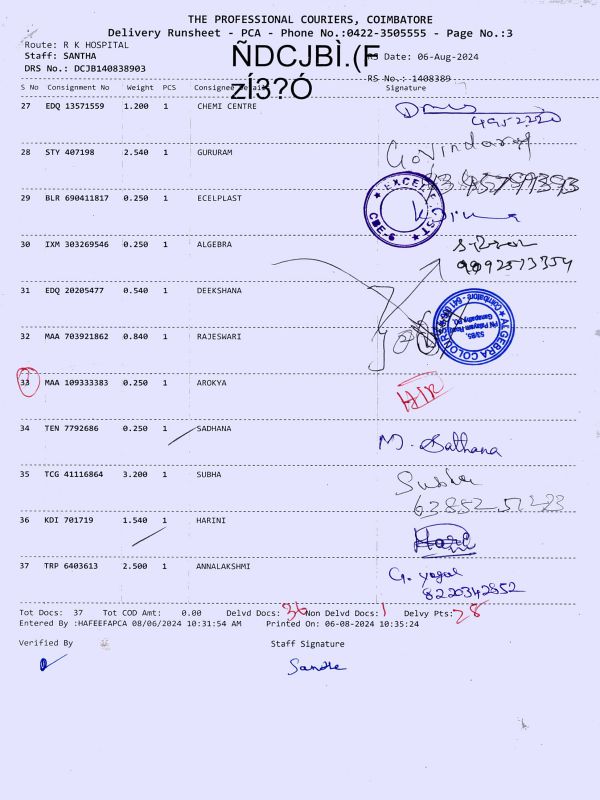 THE PROFESSIONAL COURIERS, COIMBATORE
Delivery Runsheet - PCA - Phone No.:0422-3505555 - Page No.:3
Route: R K HOSPITAL
Staff: SANTHA
RS Date: 06-Aug-2024
DRS No.: DCJB140838903
RS No.: 1408389
ÑDCJBÌ.(F
zÍ3?Ó
S No Consignment No Weight PCS Consignee Details Signature
27 EDQ 13571559 1.200 1 CHEMI CENTRE
28 STY 407198 2.540 1 GURURAM Govindaraj
29 BLR 690411817 0.250 1 ECELPLAST
30 IXM 303269546 0.250 1 ALGEBRA
9092513354
31 EDQ 20205477 0.540 1 DEEKSHANA
32 MAA 703921862 0.840 1 RAJESWARI
33 MAA 109333383 0.250 1 AROKYA
34 TEN 7792686 0.250 1 SADHANA M. Sathana
35 TCG 41116864 3.200 1 SUBHA Subha
36 KDI 701719 1.540 1 HARINI
37 TRP 6403613 2.500 1 ANNALAKSHMI
8220342852
Tot Docs: 37 Tot COD Amt: 0.00 Delvd Docs: 36 Non Delvd Docs: 1 Delvy Pts: 28
Entered By :HAFEEFAPCA 08/06/2024 10:31:54 AM Printed On: 06-08-2024 10:35:24
Verified By Staff Signature